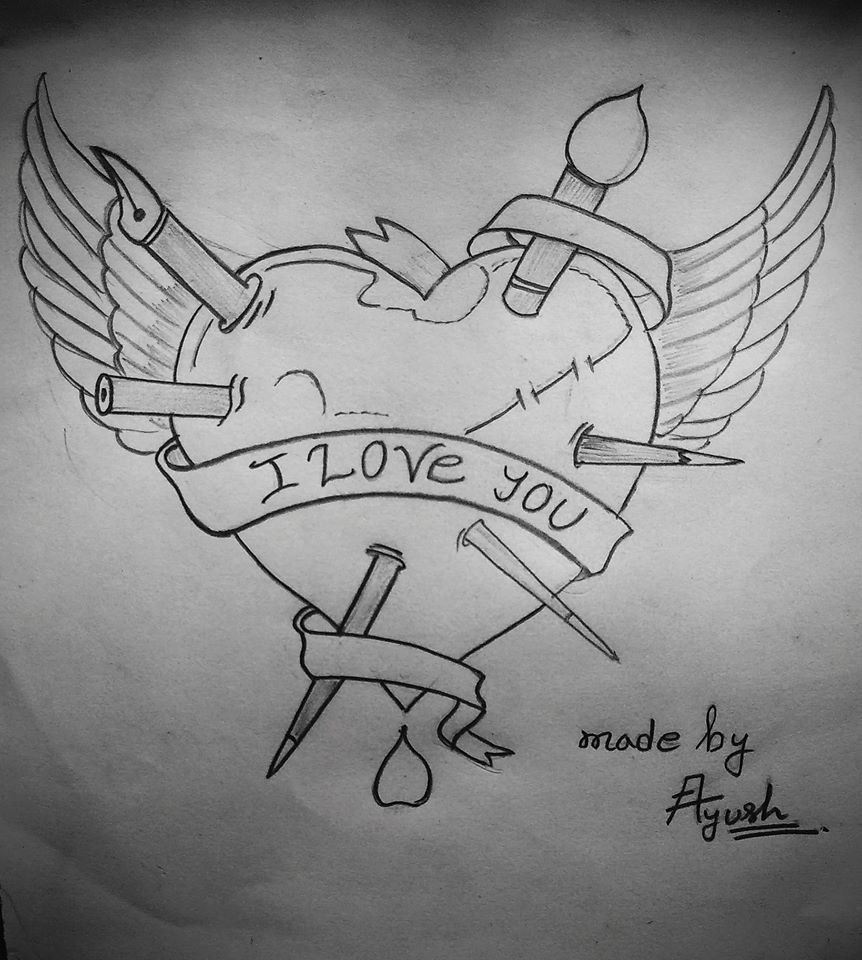 I LOVe YOU
made by
Ayush